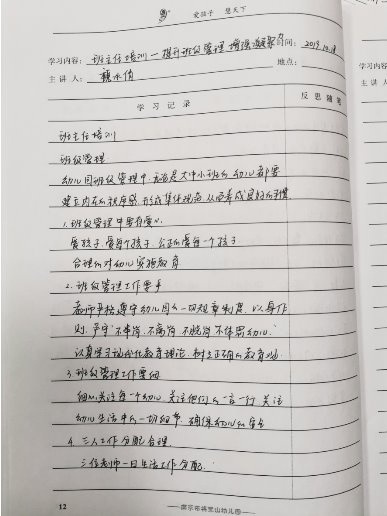 爱孩子 慧天下
学习内容: 班主任培训—提升班级管理 增强凝聚力 时间: 2019.10.18
主讲人: 地点:
学习记录 反思随笔
班主任培训
班级管理
幼儿园班级管理中,无论是大中小班的幼儿都要
建立内在的秩序感,形成集体规范,从而养成良好的习惯
1.班级管理中要有爱心
爱孩子,爱每个孩子 公正的爱每一个孩子
合理的对幼儿实施教育
2.班级管理工作要严
老师严格遵守幼儿园的一切规章制度,以身作
则,严守“不串岗,不离岗 不脱岗 不体罚幼儿”
认真学习幼儿教育理论,树立正确的教育观
3.班级管理工作要细
细心关注每一个幼儿,关注他们的一言一行 关注
幼儿生活中的一切细节,确保幼儿的安全
4.三人工作分配合理
三位老师一日生活工作分配
12
南京市 山幼儿园